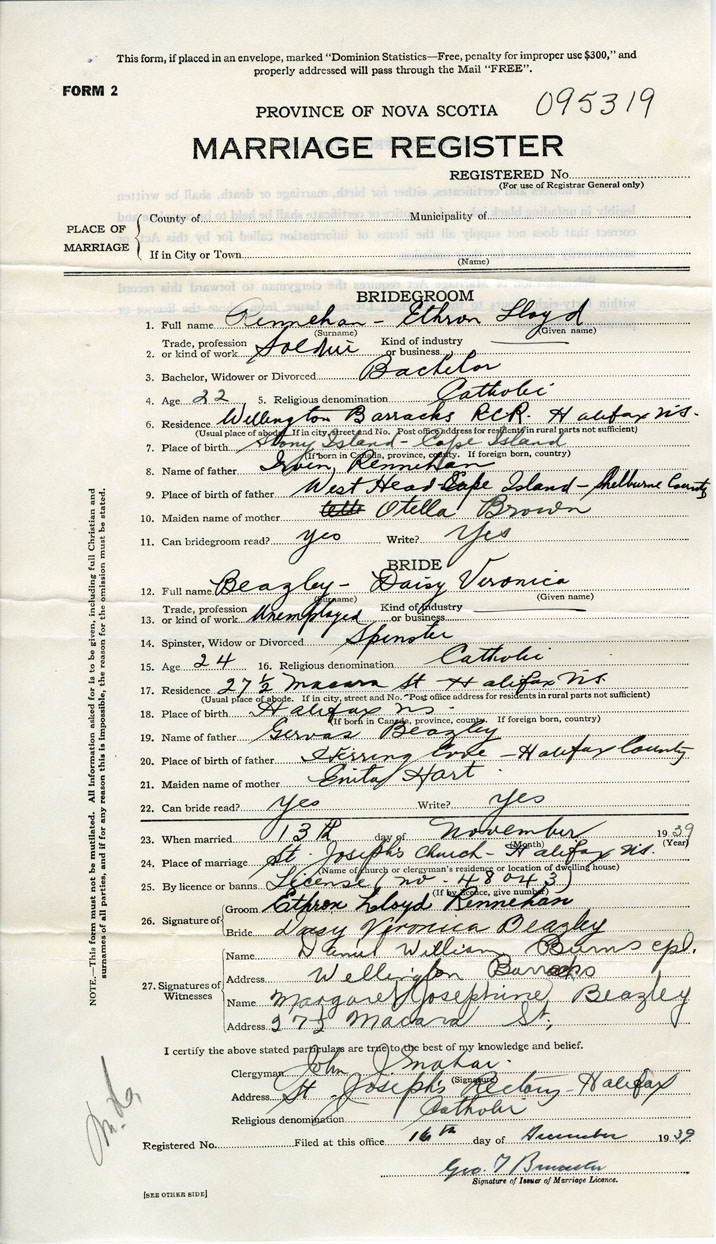 This form, if placed in an envelope, marked "Dominion Statistics—Free, penalty for improper use $300," and
properly addressed will pass through the Mail "FREE".
FORM 2
PROVINCE OF NOVA SCOTIA 095319
MARRIAGE REGISTER
REGISTERED No.
(For use of Registrar General only)
PLACE OF MARRIAGE
County of Municipality of
If in City or Town
(Name)
BRIDEGROOM
1. Full name Rennehan - Ethron Lloyd
(Surname) (Given name)
2. Trade, profession or kind of work Soldier Kind of industry or business
3. Bachelor, Widower or Divorced Bachelor
4. Age 22 5. Religious denomination Catholic
6. Residence Wellington Barracks R.C.R. Halifax N.S.
(Usual place of abode. If in city, street and No. Post office address for residents in rural parts not sufficient)
7. Place of birth Stony Island - Cape Island
(If born in Canada, province, county. If foreign born, country)
8. Name of father Irvin Rennehan
9. Place of birth of father West Head Cape Island - Shelburne County
10. Maiden name of mother Otella Brown
11. Can bridegroom read? yes Write? Yes
BRIDE
12. Full name Beazley - Daisy Veronica
(Surname) (Given name)
13. Trade, profession or kind of work Unemployed Kind of industry or business
14. Spinster, Widow or Divorced Spinster
15. Age 24 16. Religious denomination Catholic
17. Residence 27½ Macara St Halifax N.S.
(Usual place of abode. If in city, street and No. Post office address for residents in rural parts not sufficient)
18. Place of birth Halifax N.S.
(If born in Canada, province, county. If foreign born, country)
19. Name of father Gervas Beazley
20. Place of birth of father Herring Cove - Halifax County
21. Maiden name of mother Enita Hart
22. Can bride read? Yes Write? Yes
23. When married 13th day of November 1939
(Month) (Year)
24. Place of marriage St Joseph's Church - Halifax N.S.
(Name of church or clergyman's residence or location of dwelling house)
25. By licence or banns License (no - 48043)
(If by licence, give number)
26. Signature of
Groom Ethron Lloyd Rennehan
Bride Daisy Veronica Beazley
27. Signatures of Witnesses
Name William Burns cpl.
Address Wellington Barracks
Name Margaret Josephine Beazley
Address 27½ Macara St,
I certify the above stated particulars are true to the best of my knowledge and belief.
Clergyman John J
(Signature)
Address St Joseph's Rectory - Halifax
Religious denomination Catholic
Registered No. Filed at this office 16th day of December 1939
Geo. T
Signature of Issuer of Marriage Licence.
[SEE OTHER SIDE]
NOTE.—This form must not be mutilated. All information asked for is to be given, including full Christian and
surnames of all parties, and if for any reason this is impossible, the reason for the omission must be stated.